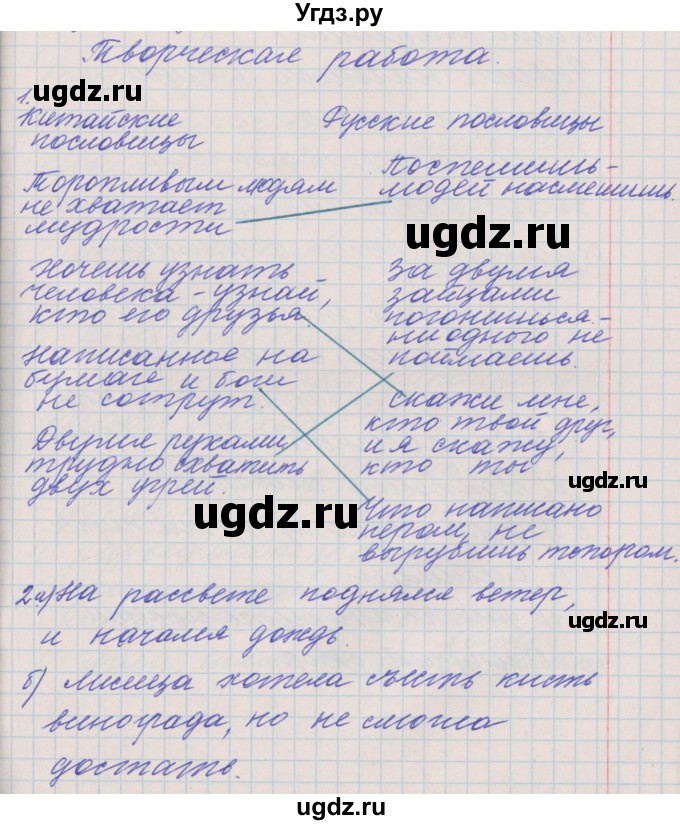 Угдз.ру
Творческая работа.
1.
Китайские
пословицы
Торопливым людям
не хватает
мудрости
Хочешь узнать
человека - узнай,
кто его друзья.
Написанное на
бумаге и бог
не сотрут.
Двумя руками
трудно схватить
двух угрей.
Русские пословицы
Поспешишь -
людей насмешишь.
За двумя
зайцами
погонишься -
ни одного не
поймаешь.
скажи мне,
кто твой друг,
и я скажу,
кто ты
Что написано
пером, не
вырубишь топором.
2 а) На рассвете поднялся ветер,
и начался дождь.
б) Лисица хотела съесть кисть
винограда, но не смогла
достать.
ugdz.ru
ugdz.ru
ugdz.ru
ugdz.ru
ugdz.ru
ugdz.ru
ugdz.ru
ugdz.ru